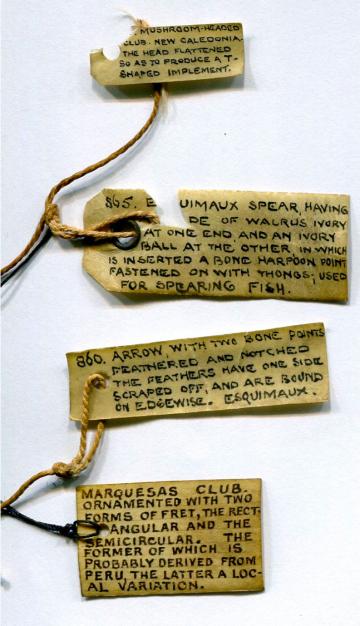 MUSHROOM-HEADED
CLUB. NEW CALEDONIA.
THE HEAD FLATTENED
SO AS TO PRODUCE A T-
SHAPED IMPLEMENT.
865. E UIMAUX SPEAR, HAVING
DE OF WALRUS IVORY
AT ONE END AND AN IVORY
BALL AT THE OTHER IN WHICH
IS INSERTED A BONE HARPOON POINT
FASTENED ON WITH THONGS; USED
FOR SPEARING FISH.
860. ARROW, WITH TWO BONE POINTS
FEATHERED AND NOTCHED
THE FEATHERS HAVE ONE SIDE
SCRAPED OFF, AND ARE BOUND
ON EDGEWISE. ESQUIMAUX.
MARQUESAS CLUB.
ORNAMENTED WITH TWO
FORMS OF FRET, THE RECT-
ANGULAR AND THE
SEMICIRCULAR. THE
FORMER OF WHICH IS
PROBABLY DERIVED FROM
PERU, THE LATTER A LOC-
AL VARIATION.